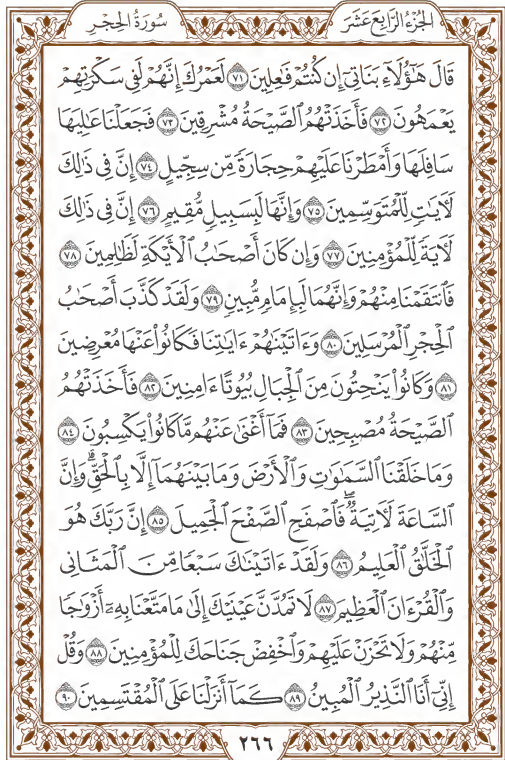 الجزء الرابع عشر
سورة الحجر
قَالَ هَٰٓؤُلَآءِ بَنَاتِىٓ إِن كُنتُمۡ فَٰعِلِينَ ٧١ لَعَمۡرُكَ إِنَّهُمۡ لَفِى سَكۡرَتِهِمۡ
يَعۡمَهُونَ ٧٢ فَأَخَذَتۡهُمُ ٱلصَّيۡحَةُ مُشۡرِقِينَ ٧٣ فَجَعَلۡنَا عَٰلِيَهَا
سَافِلَهَا وَأَمۡطَرۡنَا عَلَيۡهِمۡ حِجَارَةٗ مِّن سِجِّيلٍ ٧٤ إِنَّ فِى ذَٰلِكَ
لَأٓيَٰتٖ لِّلۡمُتَوَسِّمِينَ ٧٥ وَإِنَّهَا لَبِسَبِيلٖ مُّقِيمٍ ٧٦ إِنَّ فِى ذَٰلِكَ
لَأٓيَةٗ لِّلۡمُؤۡمِنِينَ ٧٧ وَإِن كَانَ أَصۡحَٰبُ ٱلۡأَيۡكَةِ لَظَٰلِمِينَ ٧٨
فَٱنتَقَمۡنَا مِنۡهُمۡ وَإِنَّهُمَا لَبِإِمَامٖ مُّبِينٖ ٧٩ وَلَقَدۡ كَذَّبَ أَصۡحَٰبُ
ٱلۡحِجۡرِ ٱلۡمُرۡسَلِينَ ٨٠ وَءَاتَيۡنَٰهُمۡ ءَايَٰتِنَا فَكَانُواْ عَنۡهَا مُعۡرِضِينَ
٨١ وَكَانُواْ يَنۡحِتُونَ مِنَ ٱلۡجِبَالِ بُيُوتًا ءَامِنِينَ ٨٢ فَأَخَذَتۡهُمُ
ٱلصَّيۡحَةُ مُصۡبِحِينَ ٨٣ فَمَآ أَغۡنَىٰ عَنۡهُم مَّا كَانُواْ يَكۡسِبُونَ ٨٤
وَمَا خَلَقۡنَا ٱلسَّمَٰوَٰتِ وَٱلۡأَرۡضَ وَمَا بَيۡنَهُمَآ إِلَّا بِٱلۡحَقِّۗ وَإِنَّ
ٱلسَّاعَةَ لَأٓتِيَةٞۖ فَٱصۡفَحِ ٱلصَّفۡحَ ٱلۡجَمِيلَ ٨٥ إِنَّ رَبَّكَ هُوَ
ٱلۡخَلَّٰقُ ٱلۡعَلِيمُ ٨٦ وَلَقَدۡ ءَاتَيۡنَٰكَ سَبۡعٗا مِّنَ ٱلۡمَثَانِى
وَٱلۡقُرۡءَانَ ٱلۡعَظِيمَ ٨٧ لَا تَمُدَّنَّ عَيۡنَيۡكَ إِلَىٰ مَا مَتَّعۡنَا بِهِۦٓ أَزۡوَٰجٗا
مِّنۡهُمۡ وَلَا تَحۡزَنۡ عَلَيۡهِمۡ وَٱخۡفِضۡ جَنَاحَكَ لِلۡمُؤۡمِنِينَ ٨٨ وَقُلۡ
إِنِّىٓ أَنَا ٱلنَّذِيرُ ٱلۡمُبِينُ ٨٩ كَمَآ أَنزَلۡنَا عَلَى ٱلۡمُقۡتَسِمِينَ ٩٠
٢٦٦